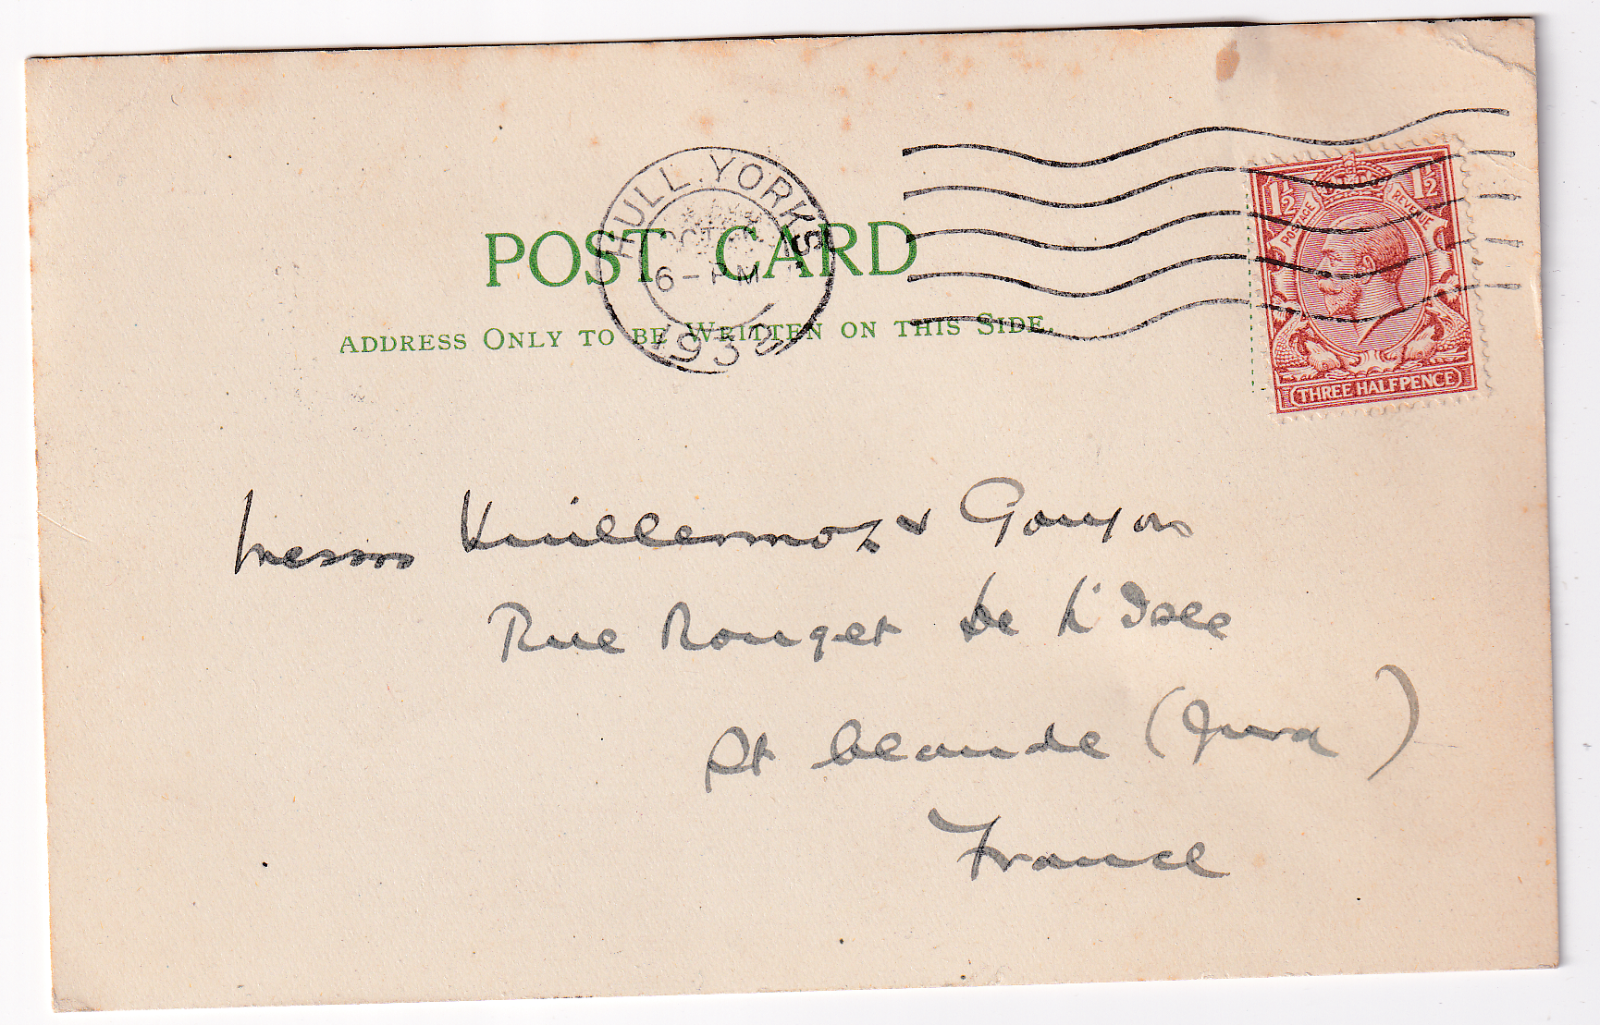 HULL. YORKS
OCT
6 - PM
193
POST CARD
ADDRESS ONLY TO BE WRITTEN ON THIS SIDE.
1½ 1½
POSTAGE REVENUE
THREE HALFPENCE
Messrs Vuillermoz & Gouyon
Rue Rouget De L'Isle
St Claude (Jura)
France